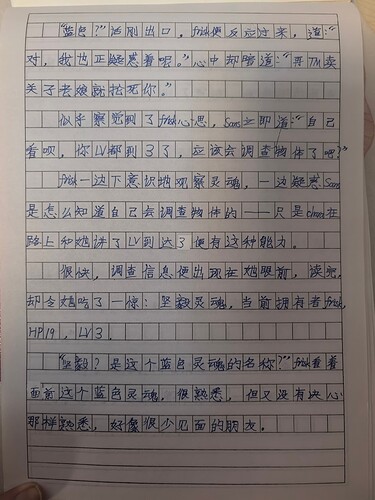 “蓝色？”话刚出口，frisk便反应过来，道：“
对，我也正疑惑着呢。”心中却暗道：“再TM卖
关子老娘就掐死你。”
似乎察觉到了frisk心思，Sans立即道：“自己
看呗，你LV都到3了，应该会调查物体了吧？”
frisk一边下意识地观察灵魂，一边疑惑Sans
是怎么知道自己会调查物体的——只是chara在
路上和她讲了LV到达3便有这种能力。
很快，调查信息便出现在她眼前，读完，
却令她吃了一惊：坚毅灵魂，当前拥有者frisk，
HP19，LV3．
“坚毅？是这个蓝色灵魂的名称？”frisk看着
面前这个蓝色灵魂，很熟悉，但又没有决心
那样熟悉，好像很少见面的朋友。